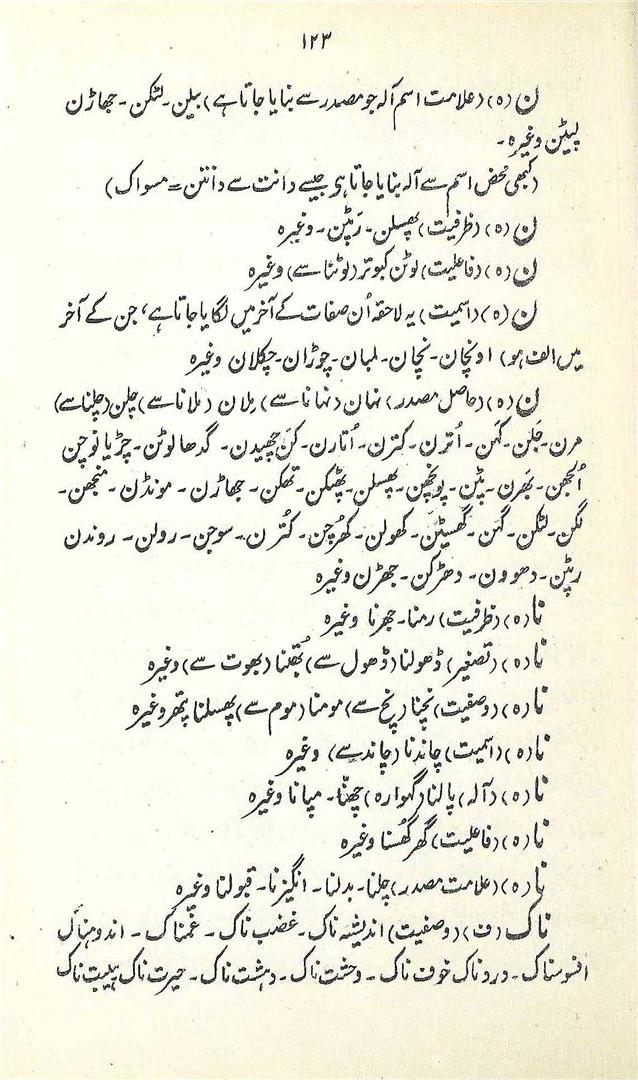 ۱۲۳
ن (ہ) (علامت اسم آلہ جو مصدر سے بنایا جاتا ہے) بیلن۔ لٹکن۔ جھاڑن
لپیٹن وغیرہ۔
(کبھی محض اسم سے آلہ بنایا جاتا ہی جیسے دانت سے داتن = مسواک)
ن (ہ) (ظرفیت) پھسلن۔ رَپٹن۔ وغیرہ
ن (ہ) (فاعلیت) لوٹن کبوتر (لوٹنا سے) وغیرہ
ن (ہ) (اسمیت) یہ لاحقہ اُن صفات کے آخر میں لگایا جاتا ہے، جن کے آخر
میں الف ہو) اونچان۔ نچان۔ لمبان۔ چوڑان۔ چکلان وغیرہ
ن (ہ) (حاصل مصدر) نہان (نہانا سے) مِلان (ملانا سے) چلن (چلنا سے)
مرن۔ جلن۔ کہن۔ اُترن۔ کترن۔ اُتارن۔ کن چھیدن۔ گدھا لوٹن۔ چڑیا نوچن
اُلجھن۔ بھرن۔ پٹن۔ پونچھن۔ پھسلن۔ پھٹکن۔ تھکن۔ جھاڑن۔ مونڈن۔ منجھن۔
لگن۔ لٹکن۔ گہن۔ گھسیٹن۔ کھولن۔ کھرچن۔ کُترن۔ سوجن۔ رولن۔ روندن
رپٹن۔ دھوون۔ دھڑکن۔ جھڑن وغیرہ
نا (ہ) (ظرفیت) رمنا۔ جھرنا وغیرہ
نا (ہ) (تصغیر) ڈھولنا (ڈھول سے) بُھتنا (بھوت سے) وغیرہ
نا (ہ) (وصفیت) نچنا (نچ سے) مومنا (موم سے) پھسلنا پتھر وغیرہ
نا (ہ) (اسمیت) چاندنا (چاند سے) وغیرہ
نا (ہ) (آلہ) پالنا (گہوارہ) چھنّا۔ میانا وغیرہ
نا (ہ) (فاعلیت) گھر گھُسنا وغیرہ
نا (ہ) (علامت مصدر) چلنا۔ بدلنا۔ انگیزنا۔ قبولنا وغیرہ
ناک (ف) (وصفیت) اندیشہ ناک۔ غضب ناک۔ غمناک۔ اندوہناک
افسوسناک۔ دردناک خوف ناک۔ وحشت ناک۔ دہشت ناک۔ حیرت ناک ہیبت ناک